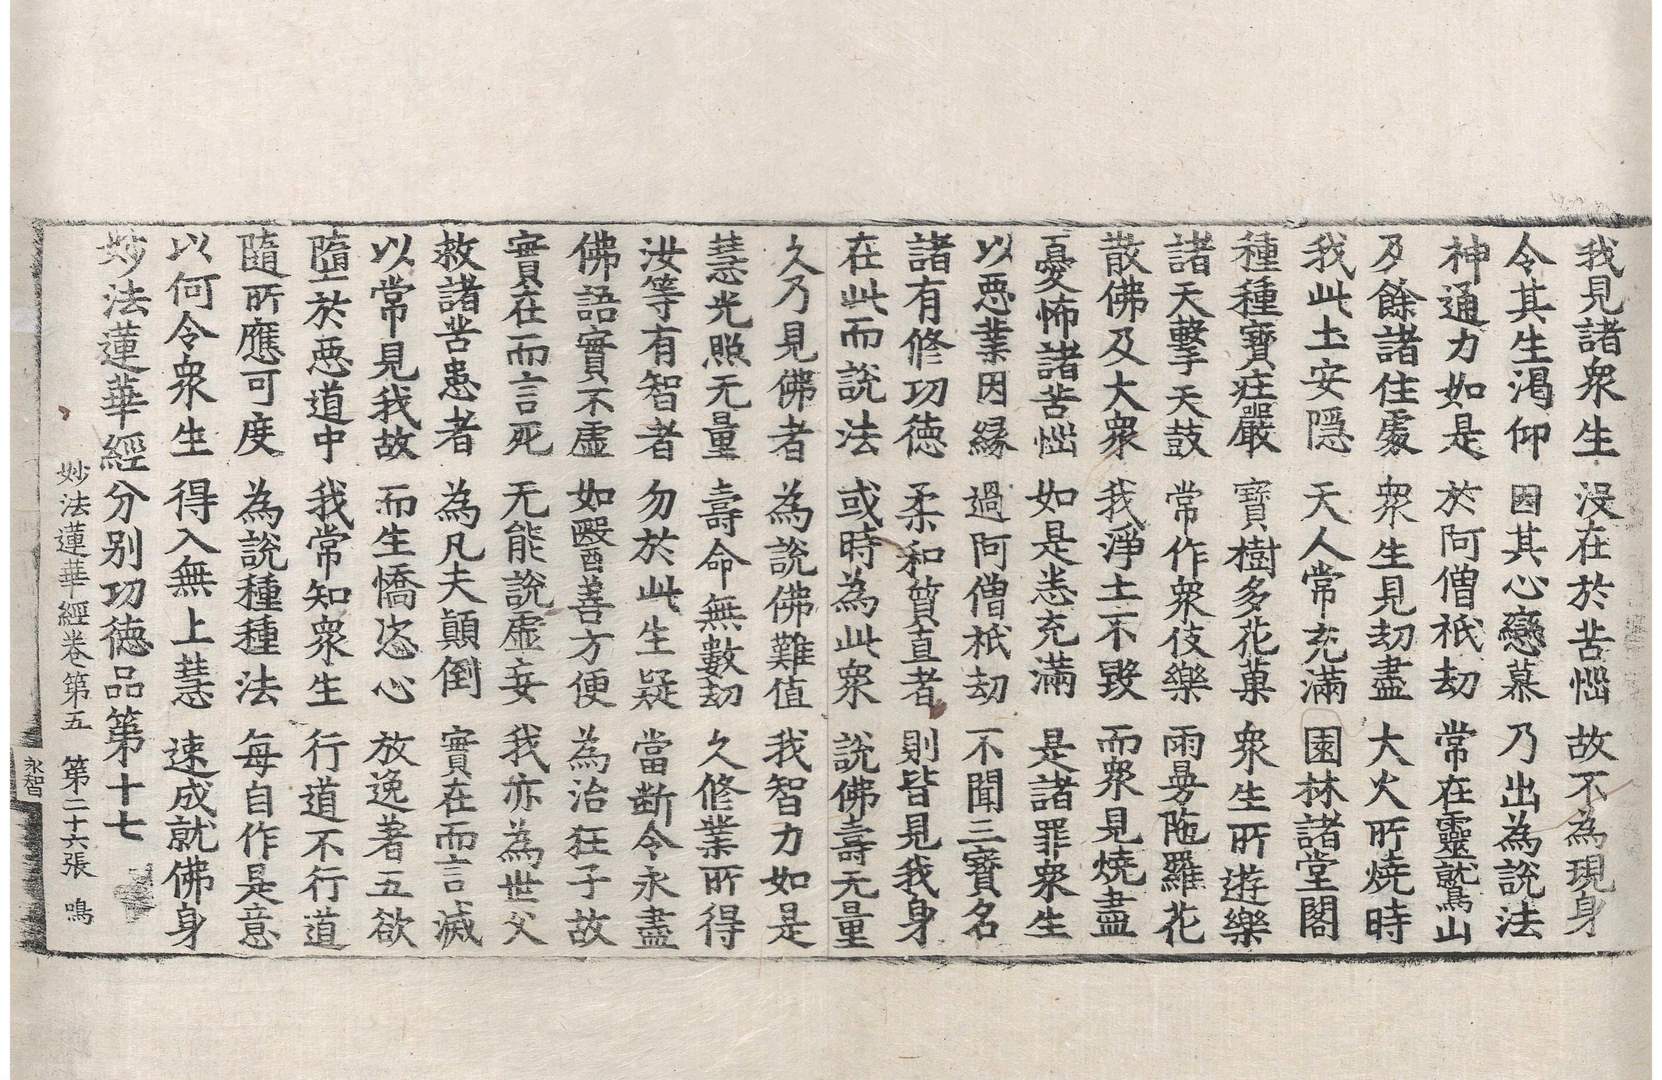 我見諸衆生 没在於苦惱 故不為現身
令其生渇仰 因其心戀慕 乃出為說法
神通力如是 於阿僧祇劫 常在靈鷲山
及餘諸住處 衆生見劫盡 大火所燒時
我此土安隱 天人常充滿 園林諸堂閣
種種寶莊嚴 寶樹多花菓 衆生所遊樂
諸天擊天鼓 常作衆伎樂 雨曼陁羅花
散佛及大衆 我淨土不毀 而衆見燒盡
憂怖諸苦惱 如是悉充滿 是諸罪衆生
以惡業因緣 過阿僧祇劫 不聞三寶名
諸有修功德 柔和質直者 則皆見我身
在此而說法 或時為此衆 說佛壽无量
久乃見佛者 為說佛難值 我智力如是
慧光照无量 壽命無數劫 久修業所得
汝等有智者 勿於此生疑 當断令永盡
佛語實不虛 如毉善方便 為治狂子故
實在而言死 无能說虛妄 我亦為世父
救諸苦患者 為凡夫顛倒 實在而言滅
以常見我故 而生憍恣心 放逸著五欲
墮於惡道中 我常知衆生 行道不行道
隨所應可度 為說種種法 每自作是意
以何令衆生 得入無上慧 速成就佛身
妙法蓮華經分別功德品第十七
妙法蓮華經卷第五 第二十六張 鳴
永智